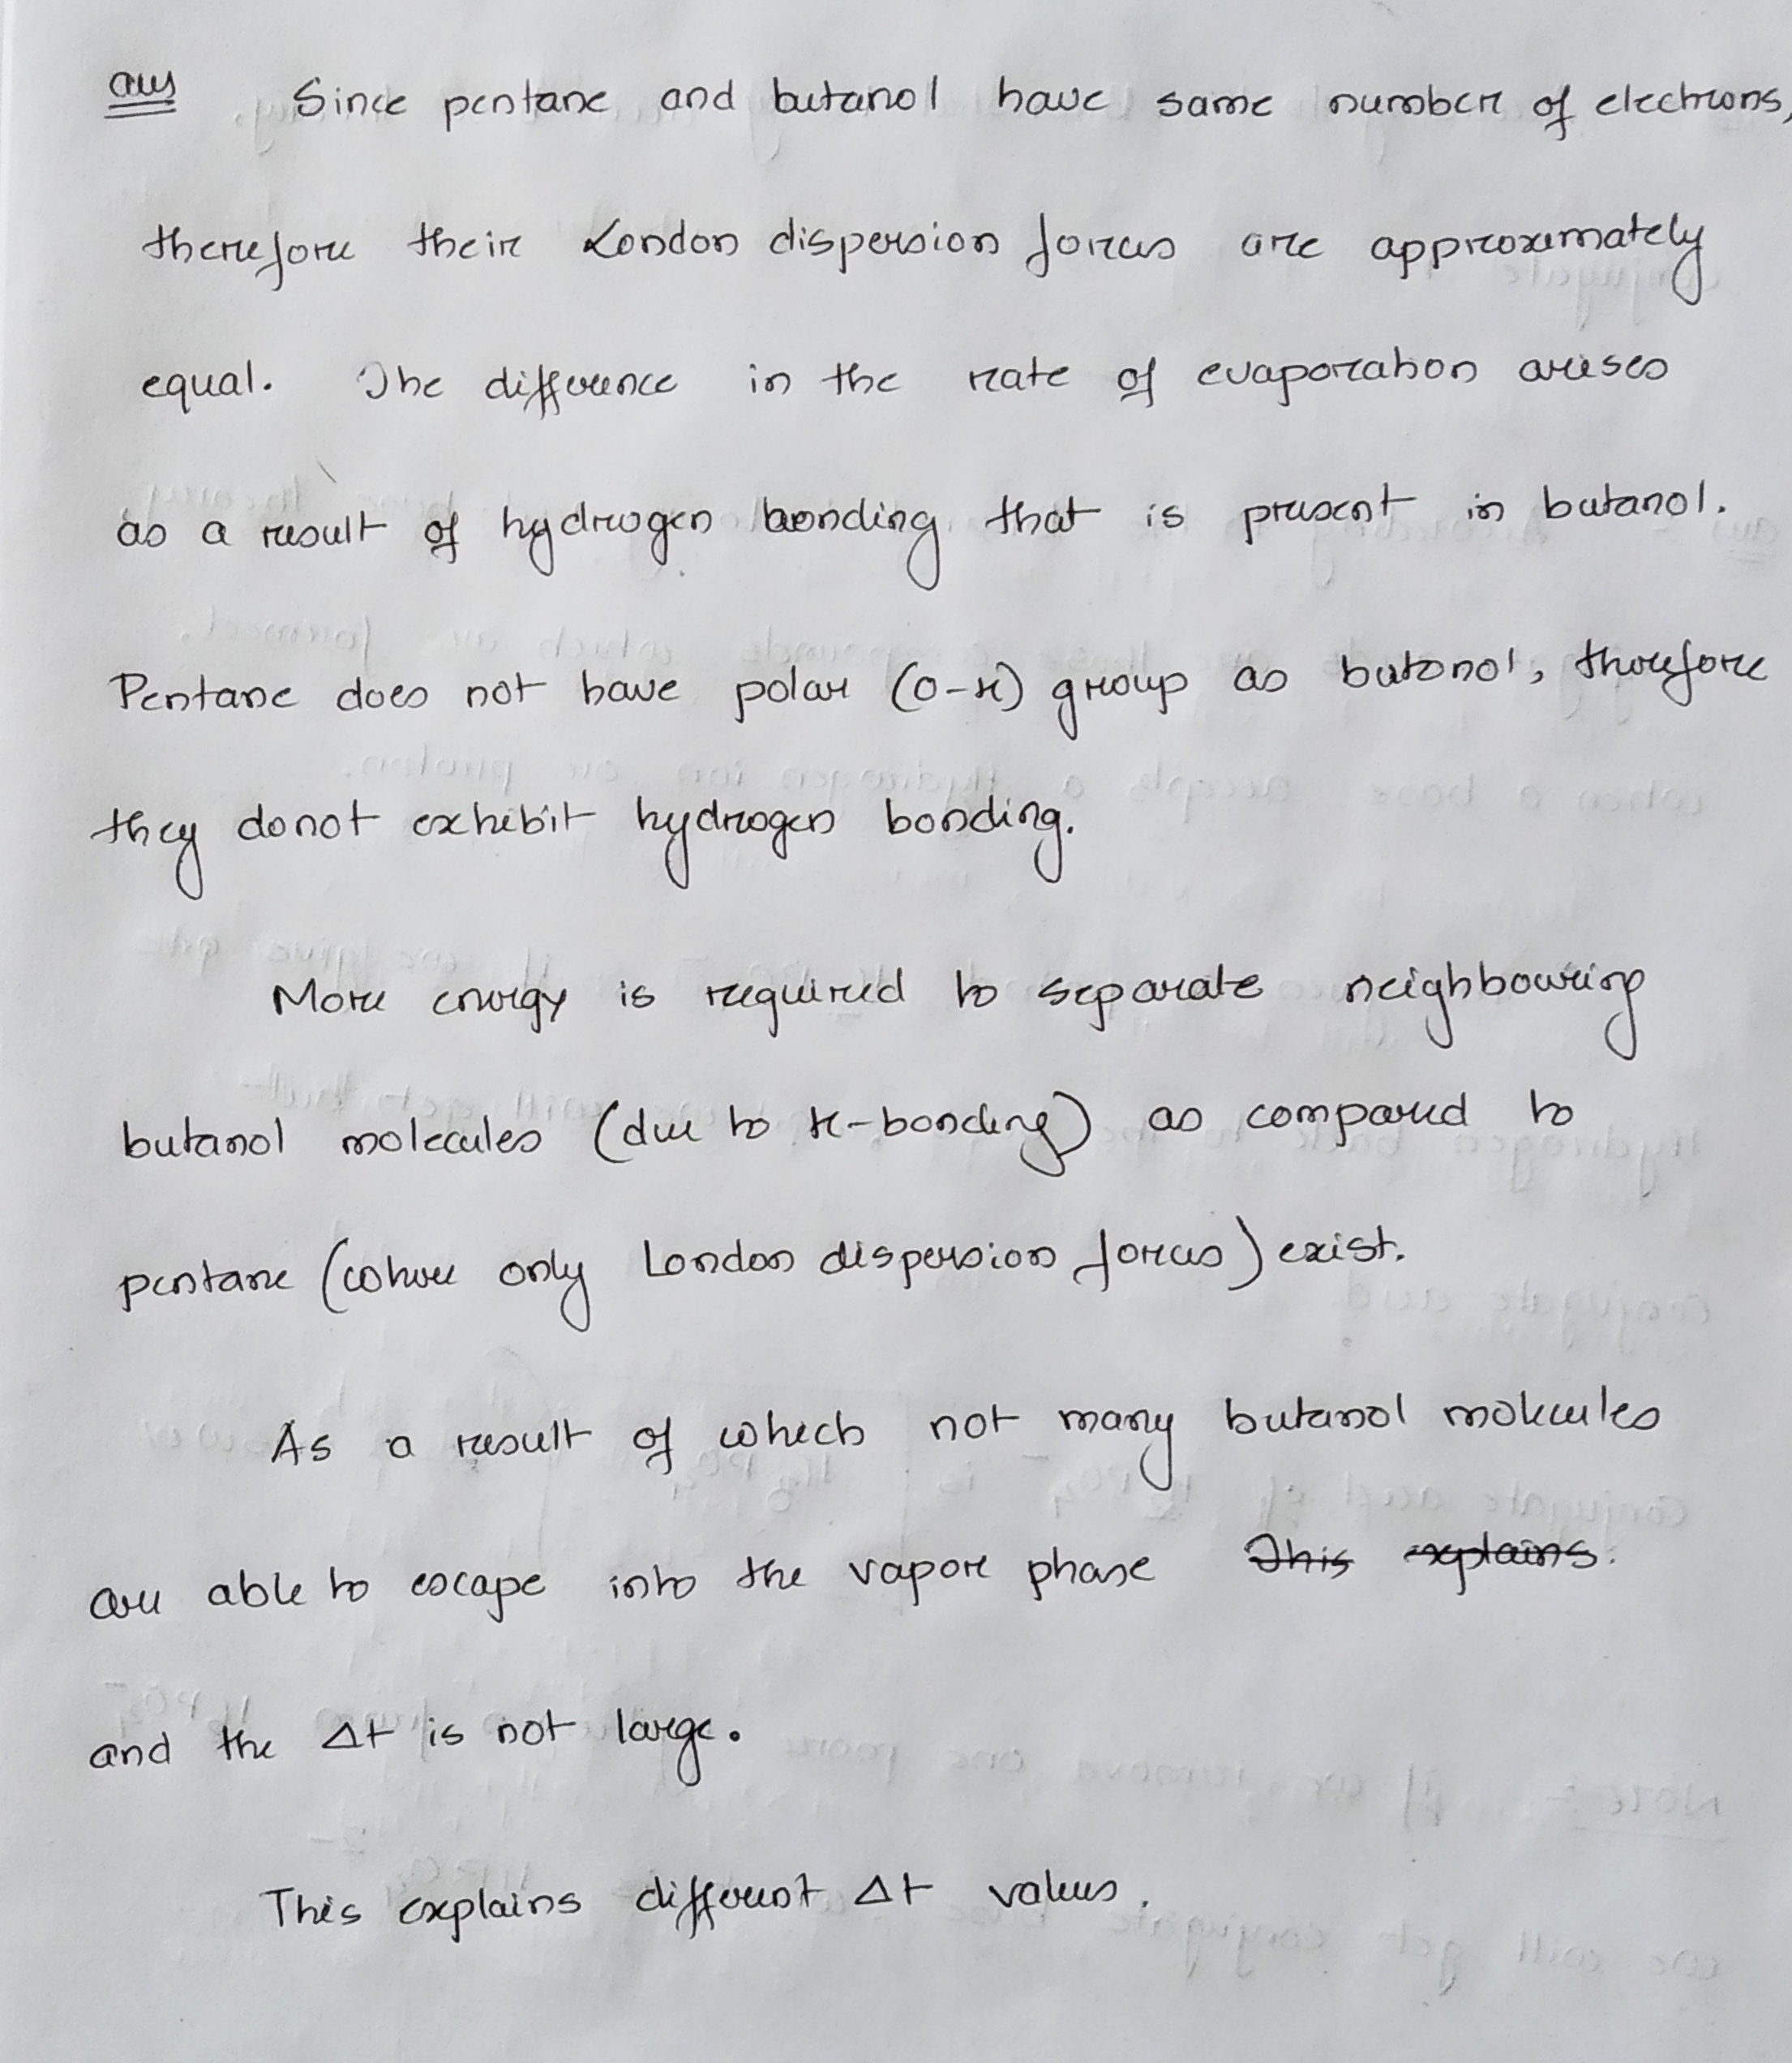 ans Since pentane and butanol have same number of electrons,
therefore their London dispersion forces are approximately
equal. The difference in the rate of evaporation arises
as a result of hydrogen bonding that is present in butanol.
Pentane does not have polar (O-H) group as butanol, therefore
they donot exhibit hydrogen bonding.
More energy is required to separate neighbouring
butanol molecules (due to H-bonding) as compared to
pentane (where only London dispersion forces) exist.
As a result of which not many butanol molecules
are able to escape into the vapor phase This explains.
and the Δt is not large.
This explains different Δt values.